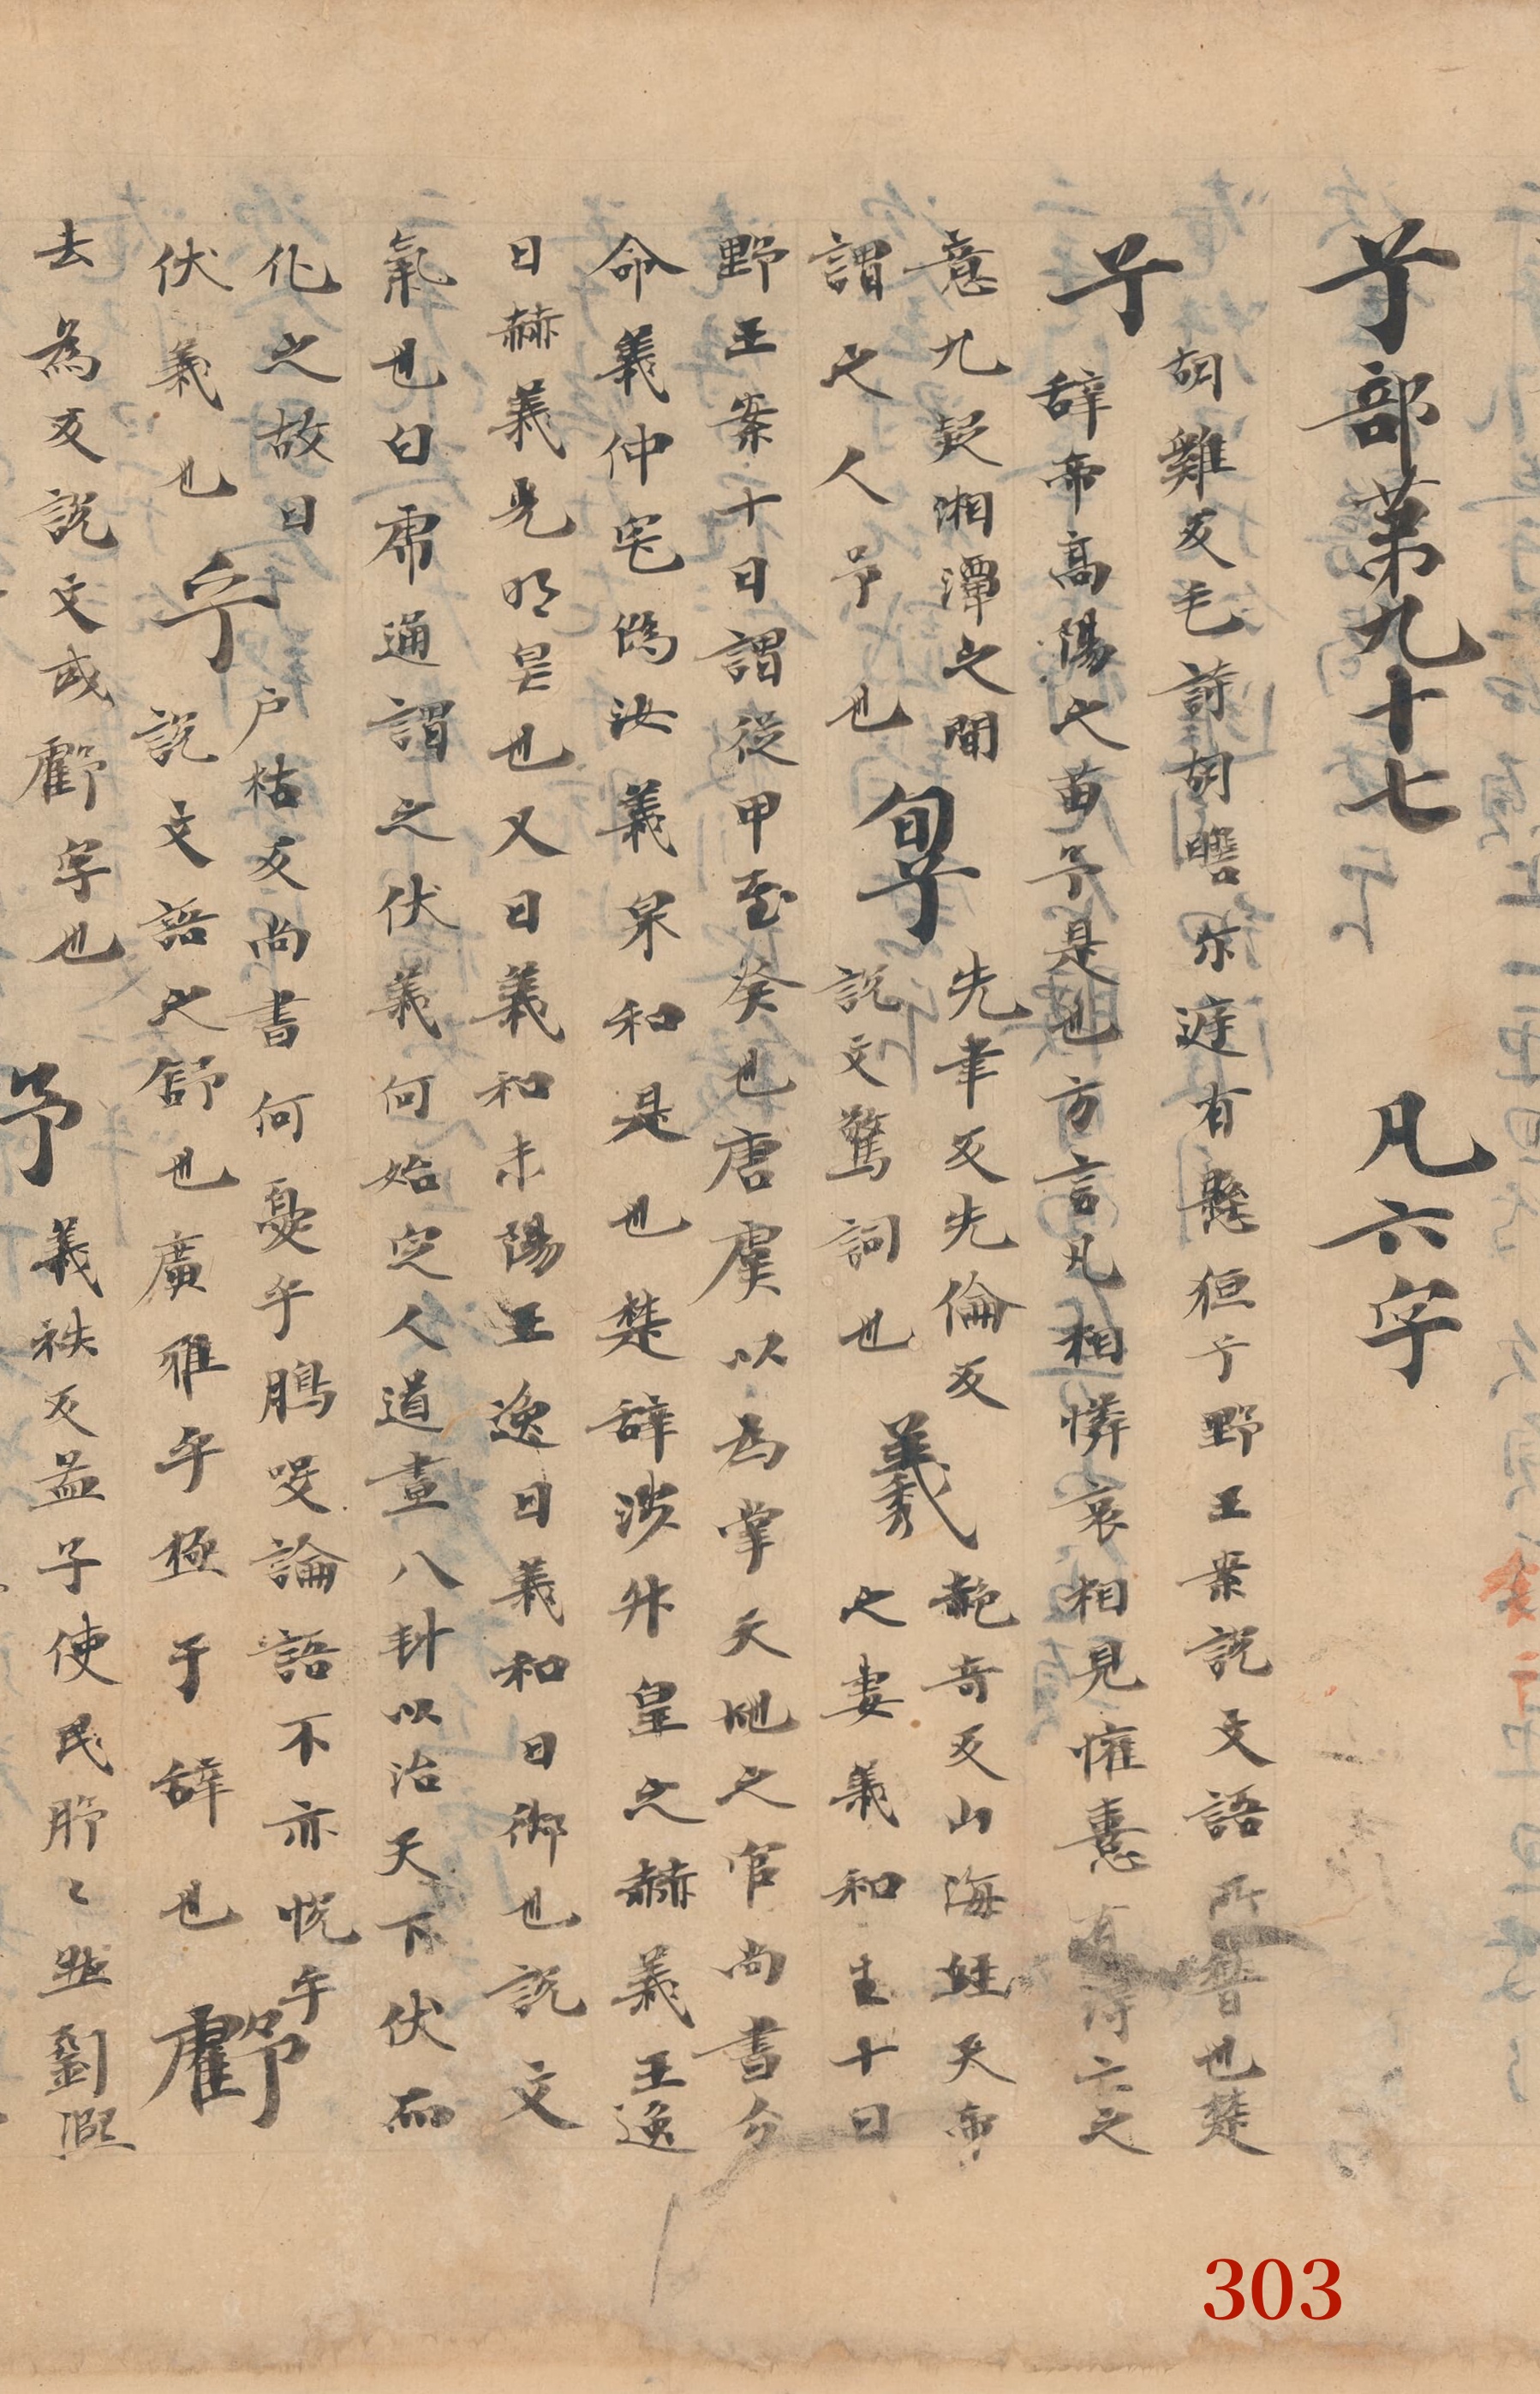 兮部第九十七 凡六字
兮 胡雞反毛詩胡瞻尓遅有懸狟兮野王案說文語所替也楚
辞帝高陽之苗兮是也方言凡相憐哀相見懽憙有得亡之
意九疑湘潭之間
謂之人兮也
㔼 先聿反先倫反
說文驚詞也
羲 䖒奇反山海姓天帝
之妻羲和生十日
野王案十日謂從甲至癸也唐虞以為掌天地之官尚書分
命羲仲宅嵎汝羲泉和是也楚辞涉升皇之赫羲王逸
曰赫羲光明皃也又曰羲和未陽王逸曰羲和日御也說文
氣也白帍通謂之伏羲何始定人道畫八卦以治天下伏而
化之故曰
伏羲也
乎 户枯反尚書何憂乎鵙㕛論語不亦恱乎
說文語之舒也廣雅乎極于辞也
虧
去為反說文或虧字也
兮 義袟反孟子使民盻〻然劉熙
303